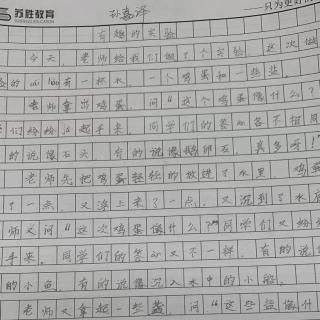 苏胜教育
SUSHENG EDUCATION
孙嘉泽
只为更好的
有趣的实验
今天，老师给我们做了个实验。这次做
的 有一杯水，一个鸡蛋和一些盐。
老师拿出鸡蛋，问“这个鸡蛋像什么？
们纷纷 起手来。同学们的答an各不相同
的说像石头，有的说像鹅卵石，真多呀！”
老师先把鸡蛋轻轻的放进了水里，鸡蛋
了一点，又浮上来了一点，又沉到了水底
师又问“这次鸡蛋像什么？”同学们又纷纷
手来。同学们的答an又不一样。有的说像
的小鱼，有的说像沉入水中的小船。
老师又拿起一些盐，问“这些盐像什